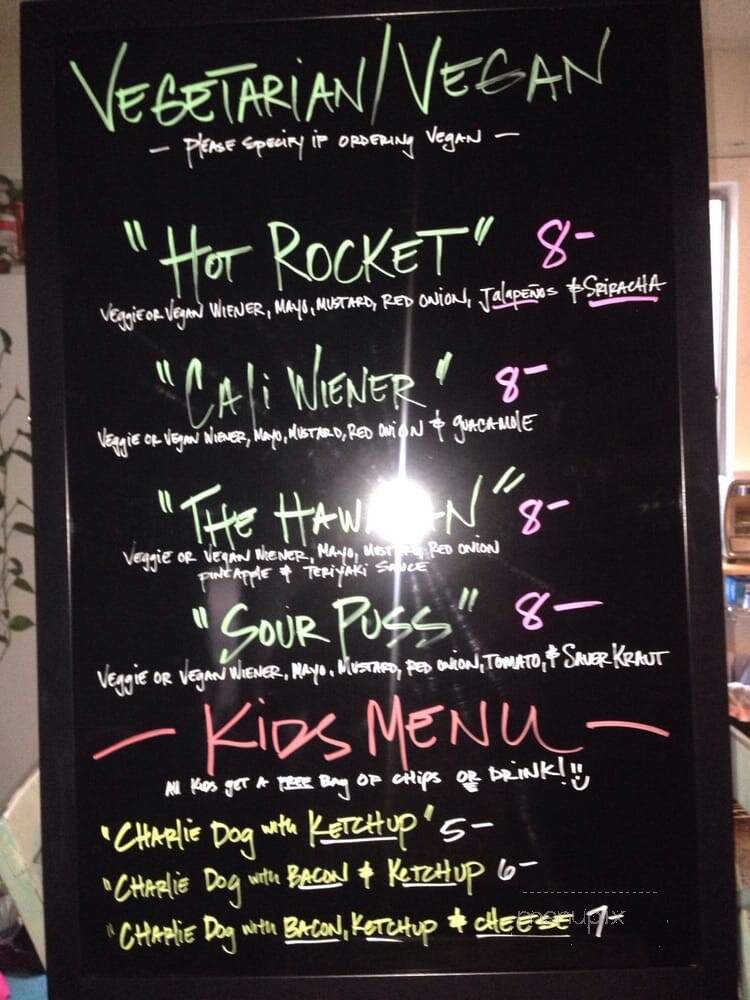 VEGETARIAN/VEGAN
— PLEASE SPECIFY IF ORDERING VEGAN —
"HOT ROCKET" 8-
VEGGIE OR VEGAN WIENER, MAYO, MUSTARD, RED ONION, JALAPEÑOS & SRIRACHA
"CALI WIENER" 8-
VEGGIE OR VEGAN WIENER, MAYO, MUSTARD, RED ONION & GUACAMOLE
"THE HAWAIIAN" 8-
VEGGIE OR VEGAN WIENER, MAYO, MUSTARD, RED ONION
PINEAPPLE & TERIYAKI SAUCE
"SOUR PUSS" 8-
VEGGIE OR VEGAN WIENER, MAYO, MUSTARD, RED ONION, TOMATO, & SAUER KRAUT
— KIDS MENU —
All KIDS GET A FREE BAG OF CHIPS OR DRINK!
"CHARLIE DOG WITH KETCHUP" 5-
"CHARLIE DOG WITH BACON & KETCHUP 6-
"CHARLIE DOG WITH BACON, KETCHUP & CHEESE 7-
menupix